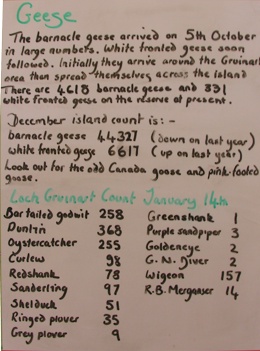 Geese
The barnacle geese arrived on 5th October
in large numbers. White fronted geese soon
followed. Initially they arrive around the Gruinart
area then spread themselves across the island
There are 4618 barnacle geese and 331
white fronted geese on the reserve at present.
December island count is:-
barnacle geese 44327 (down on last year)
white fronted geese 6617 (up on last year)
Look out for the odd Canada goose and pink-footed
goose.
Loch Gruinart Count January 14th
Bar tailed godwit 258 Greenshank 1
Dunlin 368 Purple sandpiper 3
Oystercatcher 255 Goldeneye 2
Curlew 98 G.N. Diver 2
Redshank 78 Wigeon 157
Sanderling 97 R.B. Merganser 14
Shelduck 51
Ringed plover 35
Grey plover 9